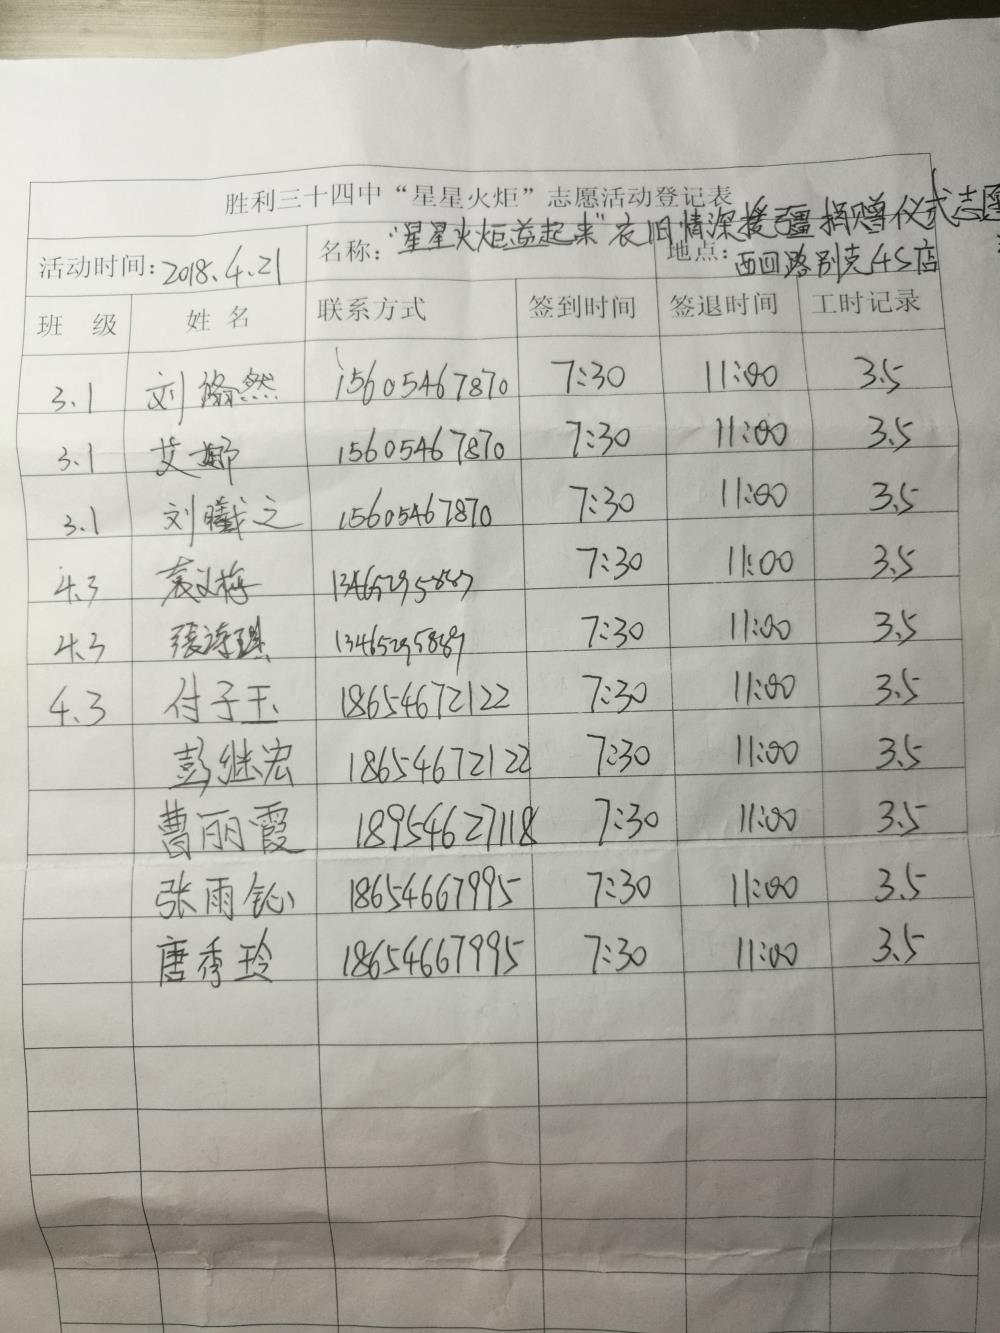 胜利三十四中“星星火炬”志愿活动登记表
活动时间：2018.4.21 名称：“星星火炬益起来”衣旧情深援疆捐赠仪式志愿
地点：西四路别克4S店
班 级 姓 名 联系方式 签到时间 签退时间 工时记录
3.1 刘 然 15605467870 7:30 11:00 3.5
3.1 艾娜 15605467870 7:30 11:00 3.5
3.1 刘曦之 15605467870 7:30 11:00 3.5
4.3 袁义梅 13465295887 7:30 11:00 3.5
4.3 张诗琪 13465295887 7:30 11:00 3.5
4.3 付子玉 18654672122 7:30 11:00 3.5
彭继宏 18654672122 7:30 11:00 3.5
曹丽霞 18954627118 7:30 11:00 3.5
张雨鈊 18654667995 7:30 11:00 3.5
唐秀玲 18654667995 7:30 11:00 3.5